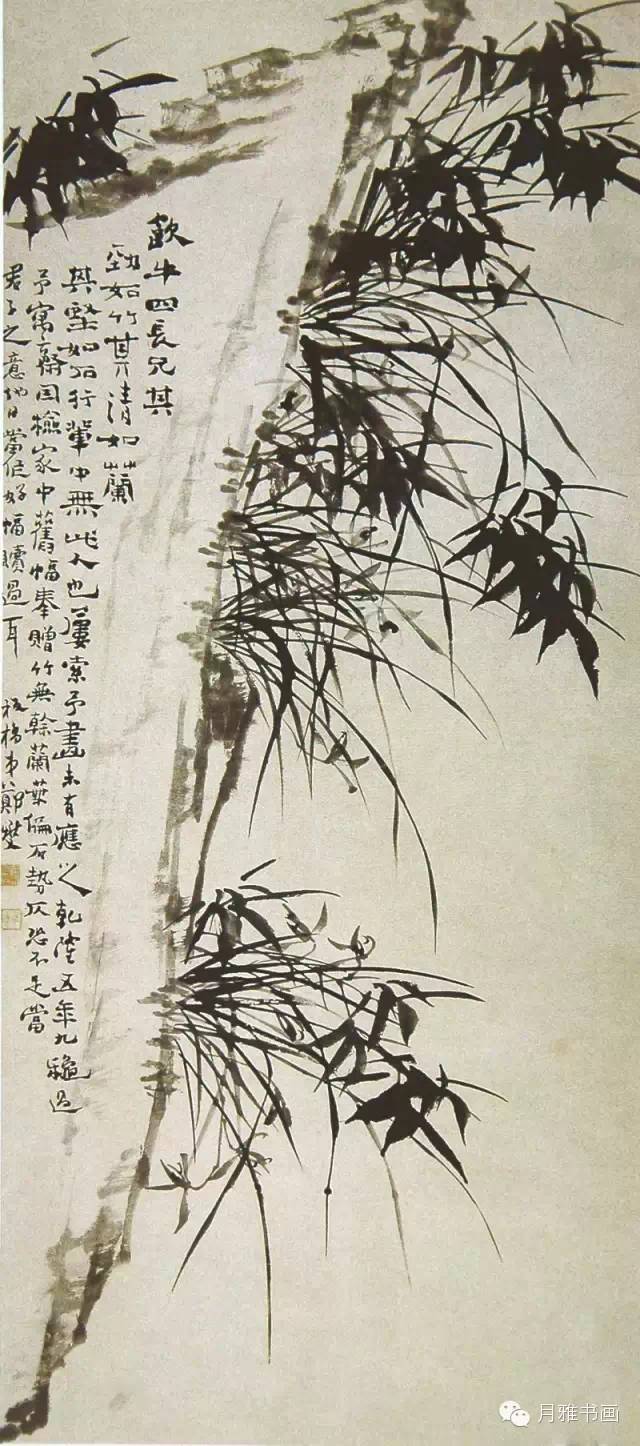 飲牛四長兄其
勁如竹其清如蘭
其堅如石行輩中無此人也屢索予畫未有應之乾隆五年九龝過
予寓齋因檢家中舊幅奉贈竹無榦蘭葉偏石勢仄恐不足當
君子之意他日當作好幅贖過耳 板橋弟鄭燮
月雅书画